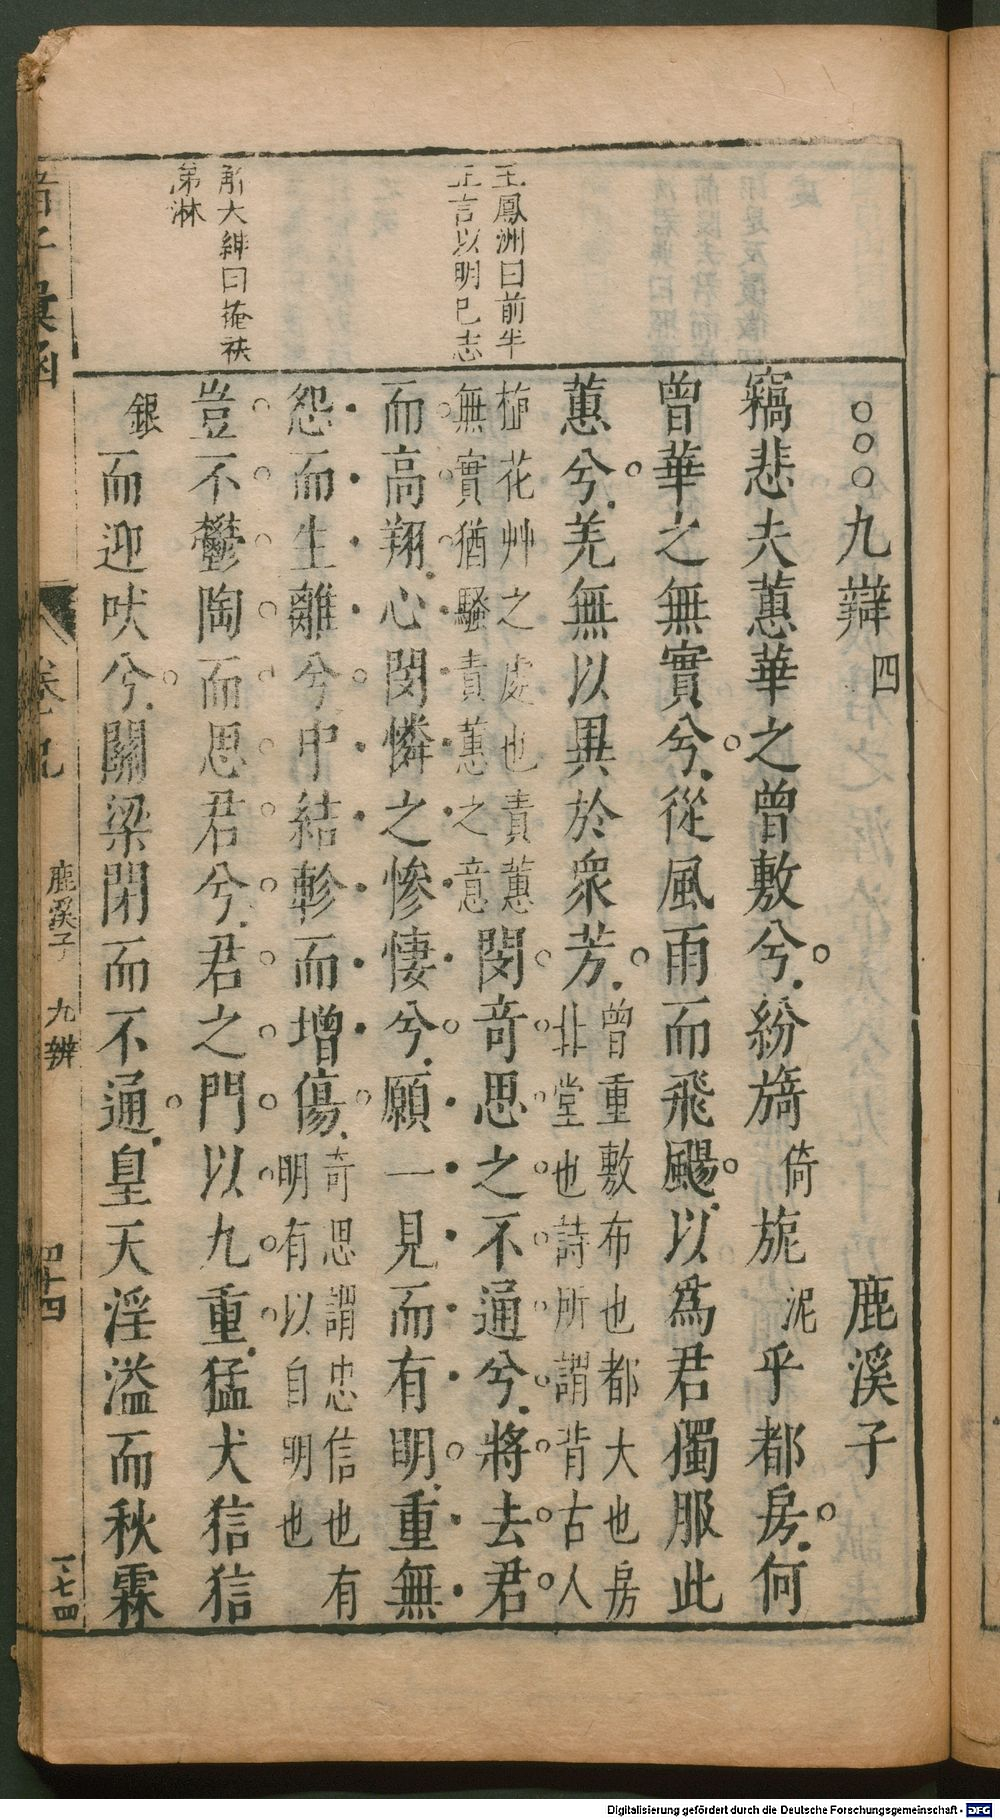 王鳳洲曰前半
正言以明已志
解大紳曰掩袂
第淋
九辯四 鹿溪子
竊悲夫蕙華之曾敷兮紛旖倚旎泥乎都房何
曾華之無實兮從風雨而飛颺以爲君獨服此
蕙兮羌無以異於衆芳曾重敷布也都大也房
北堂也詩所謂背古人
植花艸之處也責蕙
無實猶騷責蕙之意閔奇思之不通兮將去君
而高翔心閔憐之慘悽兮願一見而有明重無
怨而生離兮中結軫而增傷奇思謂忠信也有
明有以自明也
豈不鬱陶而思君兮君之門以九重猛犬狺狺
銀而迎吠兮關梁閉而不通皇天淫溢而秋霖
諸子彙函 卷之九 鹿溪子 九辨 四十四 一七四
Digitalisierung gefördert durch die Deutsche Forschungsgemeinschaft - DFG